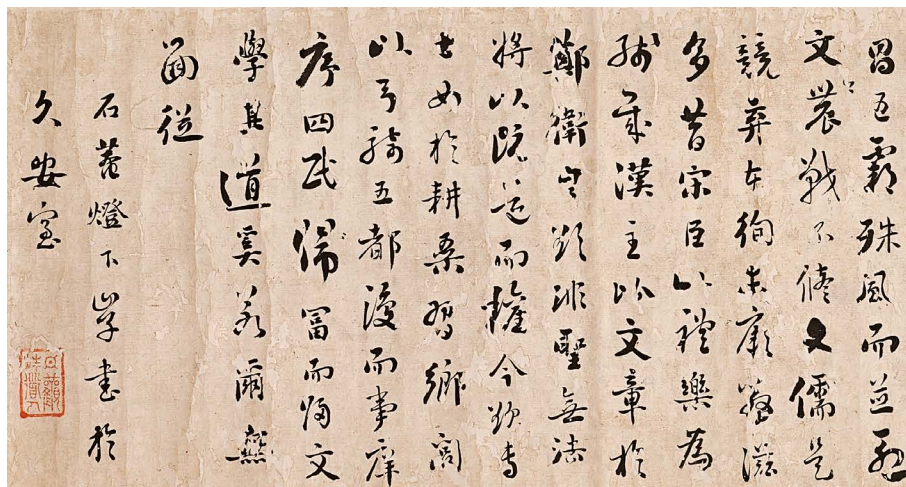 昌五霸殊風而並列
文農戰不脩文儒是
競棄本徇末厥弊滋
多昔宋臣以禮樂為
殘賊漢主比文章於
鄭衛豈欲非聖無法
將以既道而權今欲專
士女於耕桑習鄉閭
以弓騎五都復而事庠
序四民歸富而歸文
學其道奚若爾無
面從
石菴燈下學書於
久安室